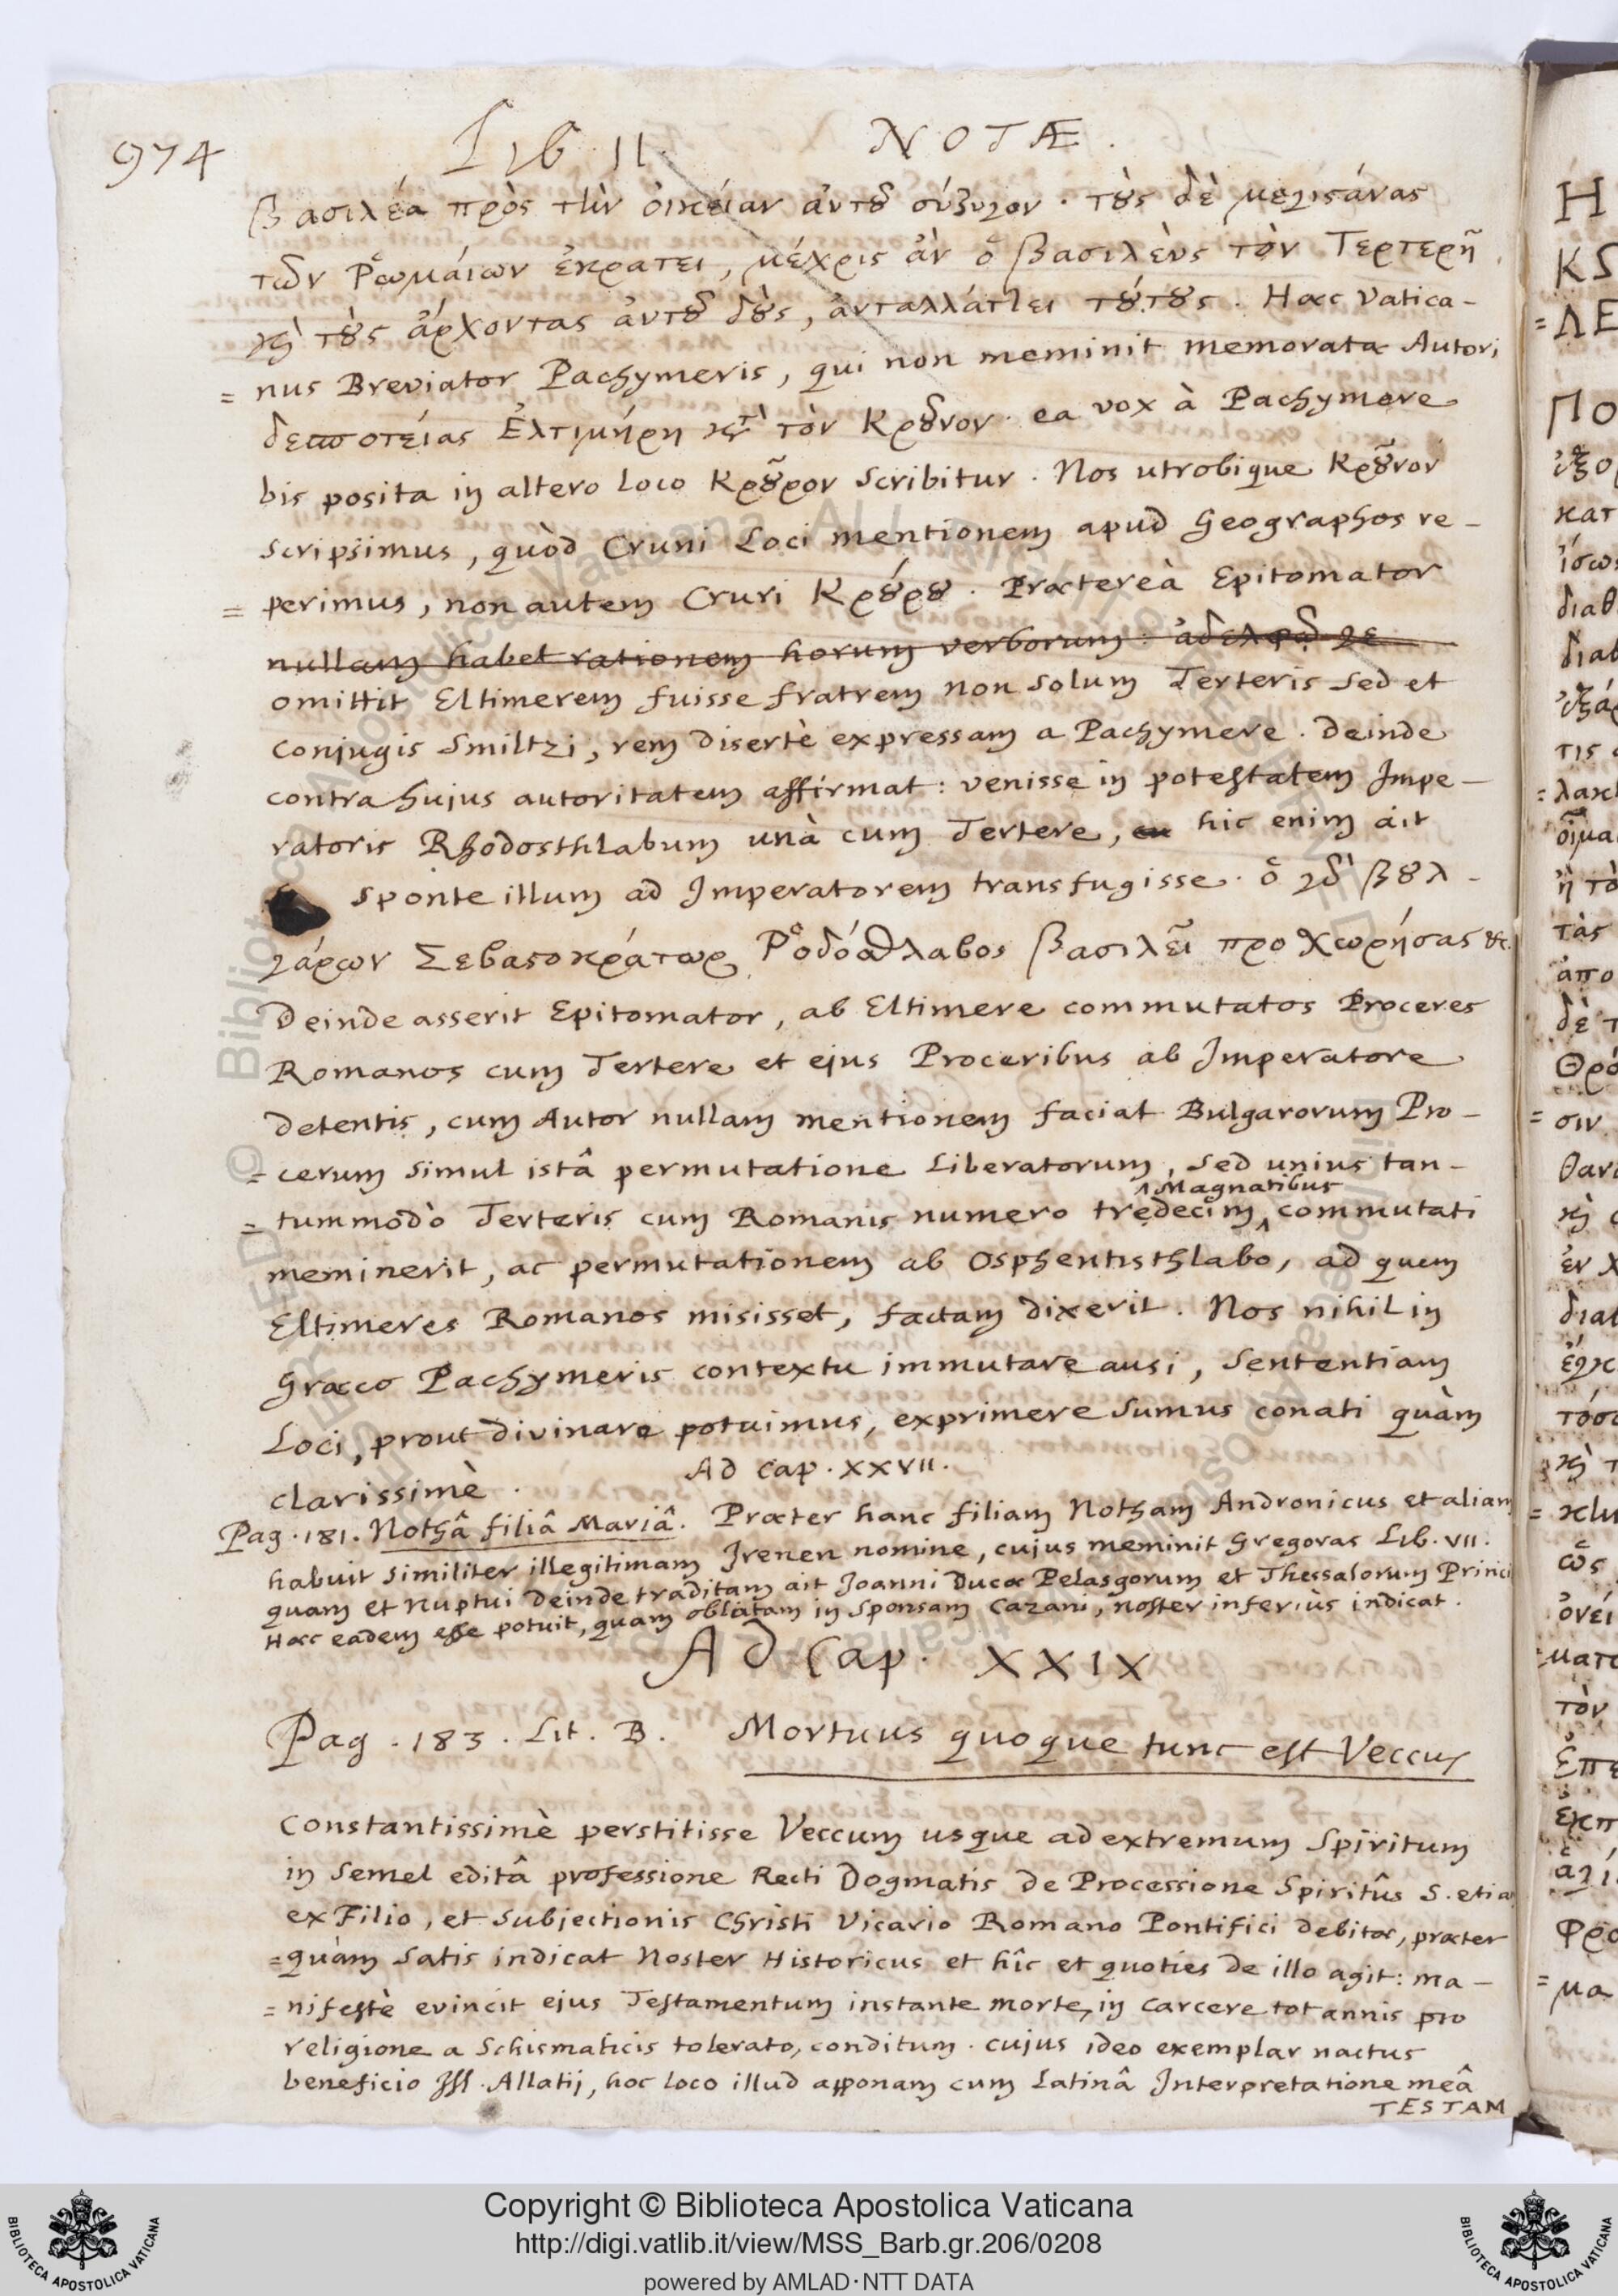 974 Lib. II. NOTÆ.
βασιλέα πρὸς τὴν ὀικείαν ἀυτȣ͂ σύζυγον. τȣ̀ς δὲ μεγιϛάνας
τῶν Ῥωμάιων ἐκρατει, μέχρις ἀν ὁ βασιλὲυς τὸν Τερτερῆ
καὶ τȣ̀ς ἀρχοντας ἀυτȣ͂ δȣ̀ς, ἀνταλλάττει τȣ́τȣς. Hæc Vatica-
= nus Breviator Pachymeris, qui non meminit memoratæ Autori
δεσποτείας Ἐλτιμήρη κατὰ τὸν Κρȣ͂νον. ea vox à Pachymere
bis posita in altero loco Κρȣ͂ρον scribitur. Nos utrobique Κρȣ͂νον
scripsimus, quòd Cruni Loci mentionem apud Geographos re-
= perimus, non autem Cruri Κρȣ́ρȣ. Prætereà Epitomator
nullam habet rationem horum verborum: ἀδελφῶ γε
omittit Eltimerem fuisse fratrem non solum Terteris sed et
conjugis Smiltzi, rem disertè expressam a Pachymere. Deinde
contra hujus autoritatem affirmat: venisse in potestatem Impe-
ratoris Rhodosthlabum unà cum Tertere, hic enim ait
sponte illum ad Imperatorem transfugisse. ὁ δὲ βȣλ-
γάρων Σεβαϛοκράτωρ Ῥοδόσθλαβος βασιλεῖ προχωρήσας &c.
Deinde asserit Epitomator, ab Eltimere commutatos Proceres
Romanos cum Tertere et ejus Proceribus ab Imperatore
detentis, cum Autor nullam mentionem faciat Bulgarorum Pro-
= cerum simul istâ permutatione Liberatorum, sed unius tan-
^ Magnatibus
= tummodò Terteris cum Romanis numero tredecim ^ commutati
meminerit, ac permutationem ab Osphentisthlabo, ad quem
Eltimeres Romanos misisset, factam dixerit. Nos nihil in
Græco Pachymeris contextu immutare ausi, sententiam
Loci, prout divinare potuimus, exprimere sumus conati quàm
clarissimè.
Ad Cap. XXVII.
Pag. 181. Nothâ filiâ Mariâ. Præter hanc filiam Notham Andronicus et aliam
habuit similiter illegitimam Irenen nomine, cujus meminit Gregoras Lib. VII.
quam et Nuptui deinde traditam ait Joanni Ducæ Pelasgorum et Thessalorum Princi
Hæc eadem esse potuit, quam oblatam in sponsam Cazani, noster inferiùs indicat.
Ad Cap. XXIX
Pag. 183. Lit. B. Mortuus quoque tunc est Veccus
Constantissimè perstitisse Veccum usque ad extremum Spiritum
in semel editâ professione Recti Dogmatis de Processione Spiritûs S. etia
ex Filio, et subjectionis Christi Vicario Romano Pontifici debitæ, præter
= quàm satis indicat Noster Historicus et hîc et quoties de illo agit: ma-
= nifestè evincit ejus Testamentum instante morte, in carcere tot annis pro
religione a Schismaticis tolerato, conditum. cujus ideo exemplar nactus
beneficio Allatij, hoc loco illud apponam cum Latinâ Interpretatione meâ
TESTAM
Copyright © Biblioteca Apostolica Vaticana
http://digi.vatlib.it/view/MSS_Barb.gr.206/0208
powered by AMLAD·NTT DATA
BIBLIOTECA APOSTOLICA VATICANA
BIBLIOTECA APOSTOLICA VATICANA